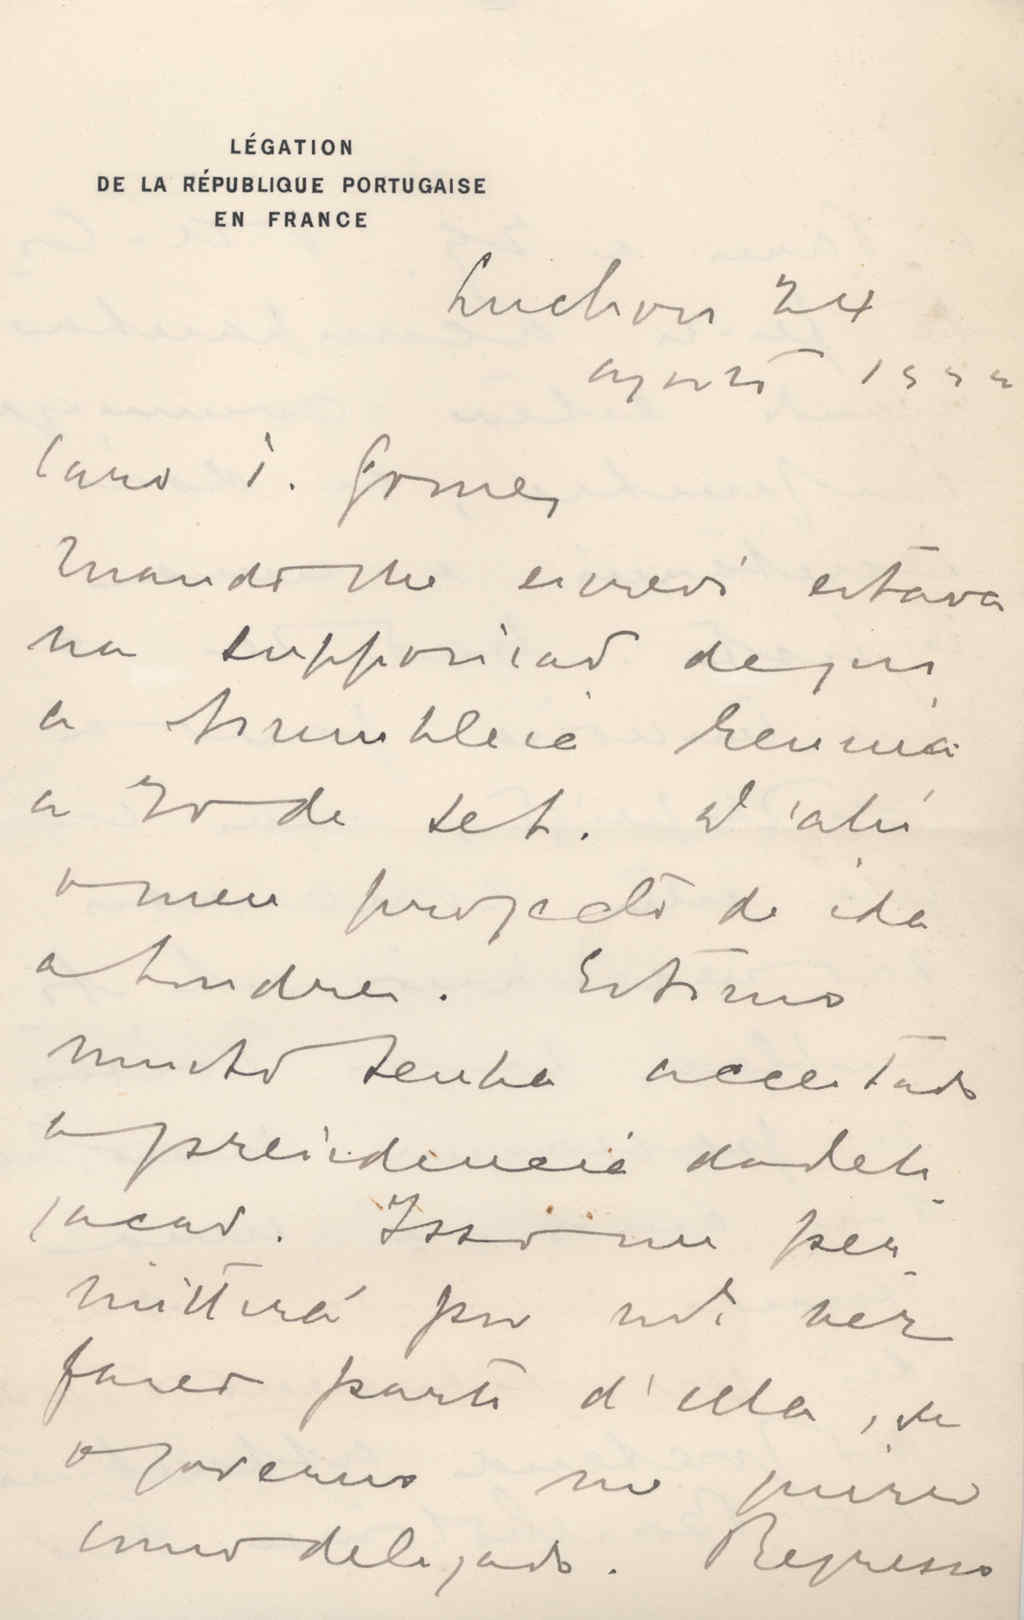 LÉGATION
DE LA RÉPUBLIQUE PORTUGAISE
EN FRANCE
Luchon 24
agosto
Caro T. Gomes
Quando lhe escrevi estava
na supposicaõ de que
a Assembleia reunia
a 20 de set. D'ahi
o meu projecto de ida
a Londres. Estimo
muito tenha acceitado
a presidencia da dele-
gacaõ. Isso me per-
mittirá por sua vez
fazer parte d'ella, se
o governo me quizer
como delegado. Regresso